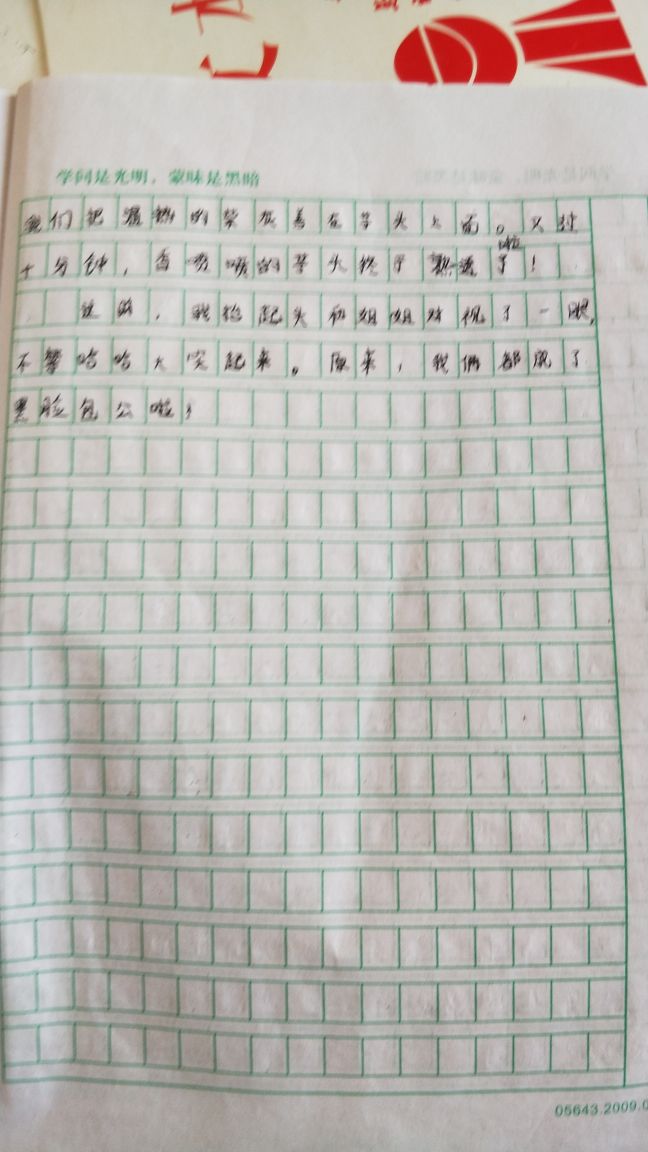 学问是光明，蒙昧是黑暗
我们把滚热的柴灰盖在芋头上面。又过
十分钟，香喷喷的芋头终于熟透了！
啦
这时，我抬起头和姐姐对视了一眼，
不禁哈哈大笑起来。原来，我俩都成了
黑脸包公啦！
05643.2009.0